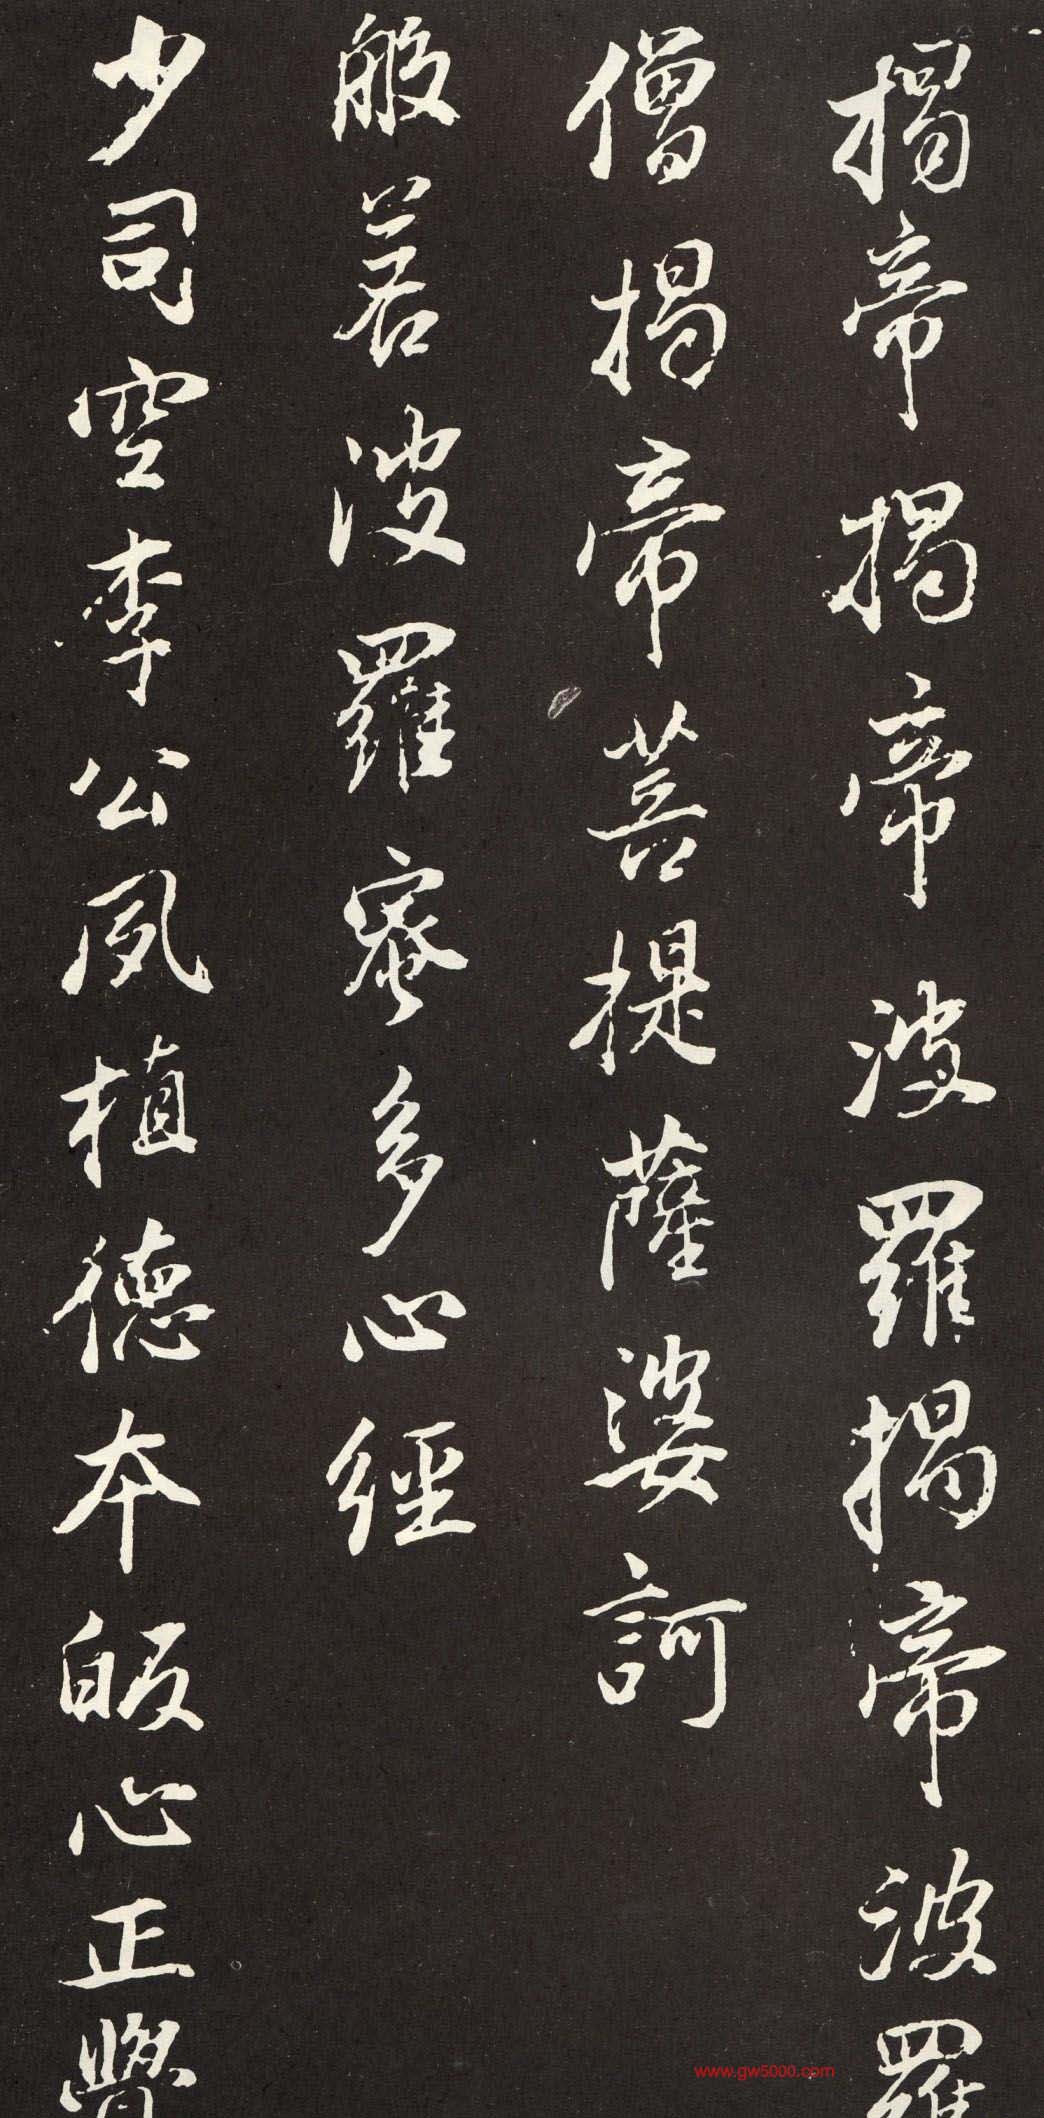 揭帝揭帝波羅揭帝波羅
僧揭帝菩提薩婆訶
般若波羅蜜多心經
少司空李公夙植德本皈心正覺
www.gw5000.com